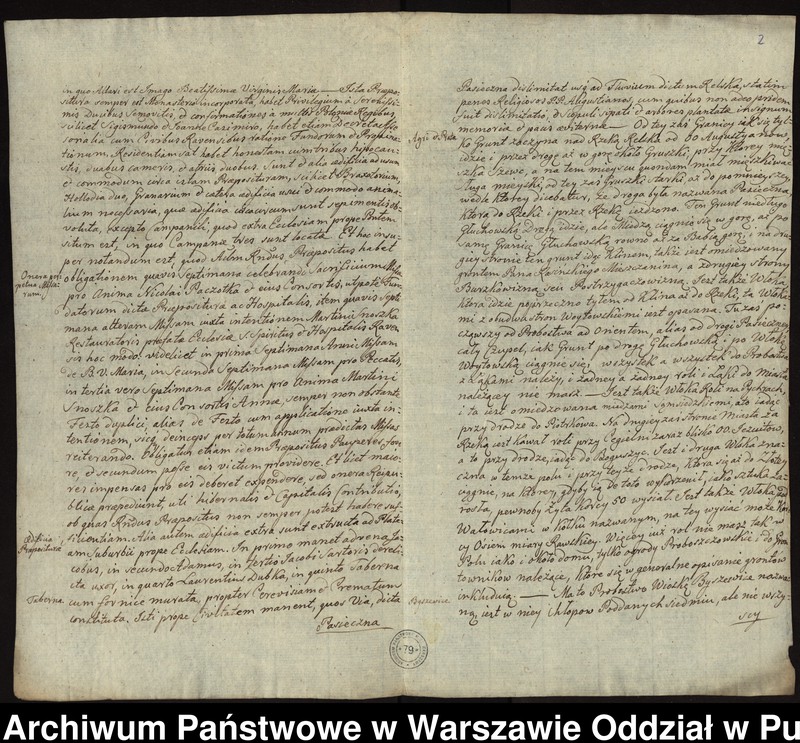 2
in quo Altari est Imago Beatissimæ Virginis Mariæ — Ista Præpo-
situra semper est Monasterio incorporata, habet Privilegium à Serenissi-
mis Duabus
scilicet Sigismundo et Joanne Casimiro, habet etiam Decreta
cum Civibus Ravensibus ratione Fundorum et Propina-
tionum. Residentiam habet honestam cum tribus hypocau-
stis, duabus cameris, et atriis duobus. Sunt et alia ædificia ad usum
et commodum circa istam Præposituram, scilicet Braxatorium,
duo, Granarium et cætera ædificia usui et commodo anima-
lium necessaria, quæ ædificia circumcirca sunt sepimentis ob-
voluta, excepto Campanili, quod extra Ecclesiam prope Portam
situm est, in quo Campanæ tres sunt locatæ. Et hoc insu-
per notandum est, quod Adm Rndus Præpositus habet
obligationem quavis Septimana celebrandi Sacrificium Missæ
Onera per
petua Missa
rum.
pro Anima Nicolai Paczotka et ejus Consortis, utpote Fun-
datorum dictæ Præpositura ac Hospitalis, item quavis Septi-
mana alteram Missam juxta intentionem Martini Snoszka
Restauratoris præfatæ Ecclesiæ S. Spiritus et Hospitalis Raven
sis hoc modo: videlicet in prima Septimana Anni Missam
de B. V. Maria, in secunda Septimana Missam pro Peccatis,
in tertia vero Septimana Missam pro Anima Martini
Snoszka et ejus Consortis Annæ, semper non obstante
Festo duplici, alias de Festo cum applicatione juxta in-
tentionem, sicq deinceps per totum annum prædictas Missas
reiterando. Obligatur etiam idem Præpositus Pauperes fove-
re, et secundum posse eis victum providere. Et licet majo-
res impensas pro eis deberet expendere, sed onera Reipu-
blicæ præpediunt, uti hibernalis et Capitalis Contributio,
ob quas Rndus Præpositus non semper potest habere suf-
ficientiam. Alia autem ædificia extra sunt extructa ad Plate-
Ædificia
Præposituræ
am Suburbii prope Ecclesiam. In primo manet
cobus, in secundo Adamus, in tertio Jacobi Sartoris dereli-
cta uxor, in quarto Laurentius Dubka, in quinto Taberna
Taberna.
cum fornice murata, propter Cerevisiam et Crematum
constituta. Isti prope Civitatem manent, quos Via, dicta
Pasieczna
Pasieczna dislimitat usq ad Fluvium dictum Relska, statim
penes Religiosos P.P. Augustianos, cum quibus non adeo pridem
fuit dislimitatio, et scopuli sipati et arbores plantatæ in signum
memoriæ et pacis æternæ — Od tey zaś Granicy iak się tyl-
Agri et Prata
ko Grunt zaczyna nad Rzeką Relską od OO Augustyanow,
idzie przez drogę aż w gorę około Gruszki, przy ktorey mie-
szka Szewc, a na tem mieyscu quondam miał mieszkiwać
Sługa mieyski, od tey zaś gruszki starki aż do pomnieyszey,
wedle ktorey dicebatur, że droga była nazwana Pasieczna,
ktorą do Rzeki i przez Rzekę ieżdżono. Ten Grunt niedługo
Głuchowską Drogą idzie, ale Miedzą ciągnie się w gorę, aż po
samę Granicę Głuchowską rowno aż za Babią gorę, i na dru-
giey stronie ten grunt idąc klinem, także iest omiedzowany
gruntem Pana Kosińskiego Mieszczanina, a z drugiey strony
Burzkowizną seu Postrzygaczowizną. Jest także Włoka,
ktora idzie poprzeczno tytem od Klina aż do Rzeki, ta Włoka-
mi z obudwu stron Woytowskiemi iest opasana. Tu zaś po-
cząwszy od Probostwa ad Orientem, alias od drogi Pasieczney,
cały Czupel, iak Grunt po drogę Głuchowską i po Włokę
Woytowską ciągnie się, wszystek a wszystek do Probostwa
z Łąkami należy, i żadney a żadney roli i Łąki do Miasta
należącey nie masz. — Jest także Włoka Roli na Pychrach,
i ta iest omiedzowana miedzami sąmsiedzkiemi, a to iadąc
przy drodze do Piotrkowa. Na drugiey zaś stronie Miasta za
Rzeką iest kawał roli przy Cegielni zaraz blisko OO. Jezuitow,
a to przy drodze, iadąc do Boguszyc. Jest i druga Włoka zna-
czna w temże polu i przy teyże drodze, ktora się aż do Złotey
ciągnie, na ktorey, gdyby ią do toto wydrzewił, iako sztuka za-
rosła, pewnoby Żyta korcy 50 wysiał. Jest także Włoka pod
Watowicami w Kątku nazwanym, na tey wysiać może Kor-
cy Osiem miary Rawskiey. Więcey iuż rol nie masz tak w
Polu iako i około domu, tylko ogrody Proboszczowskie i do Grun-
townikow należące, ktore się w generalne opisanie gruntow
inkluduią. — Ma to Probostwo Wioskę Byszewice nazwa-
Byszewice
ną, iest w niey Chłopow Poddanych siedmiu, ale nie wszy-
scy
79
Archiwum Państwowe w Warszawie Oddział w Pu